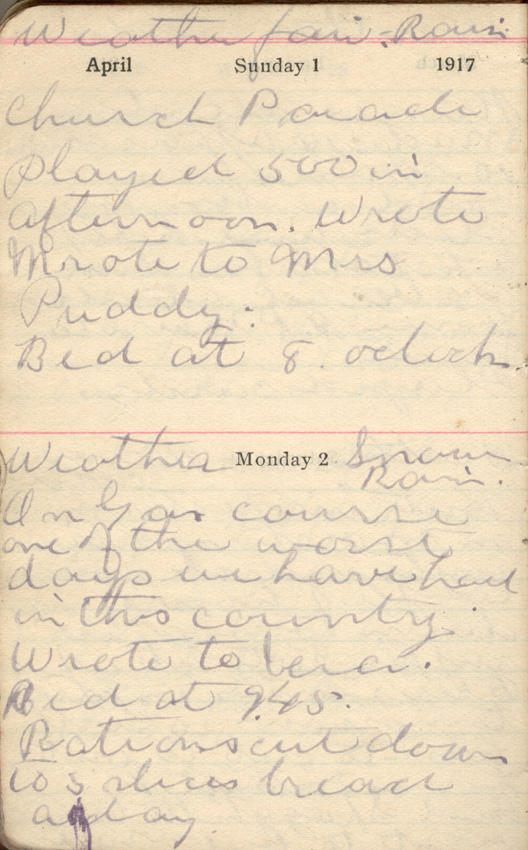 Weather fair - Rain
April Sunday 1 1917
Church Parade
Played 500 in
afternoon. Wrote
Wrote to Mrs
Puddy.
Bed at 8 oclock
Weather Monday 2 Snow
Rain.
On Gas course
one of the worst
days we have had
in this country.
Wrote to Vera.
Bed at 9.45.
Rations cut down
to 3 slices bread
a day